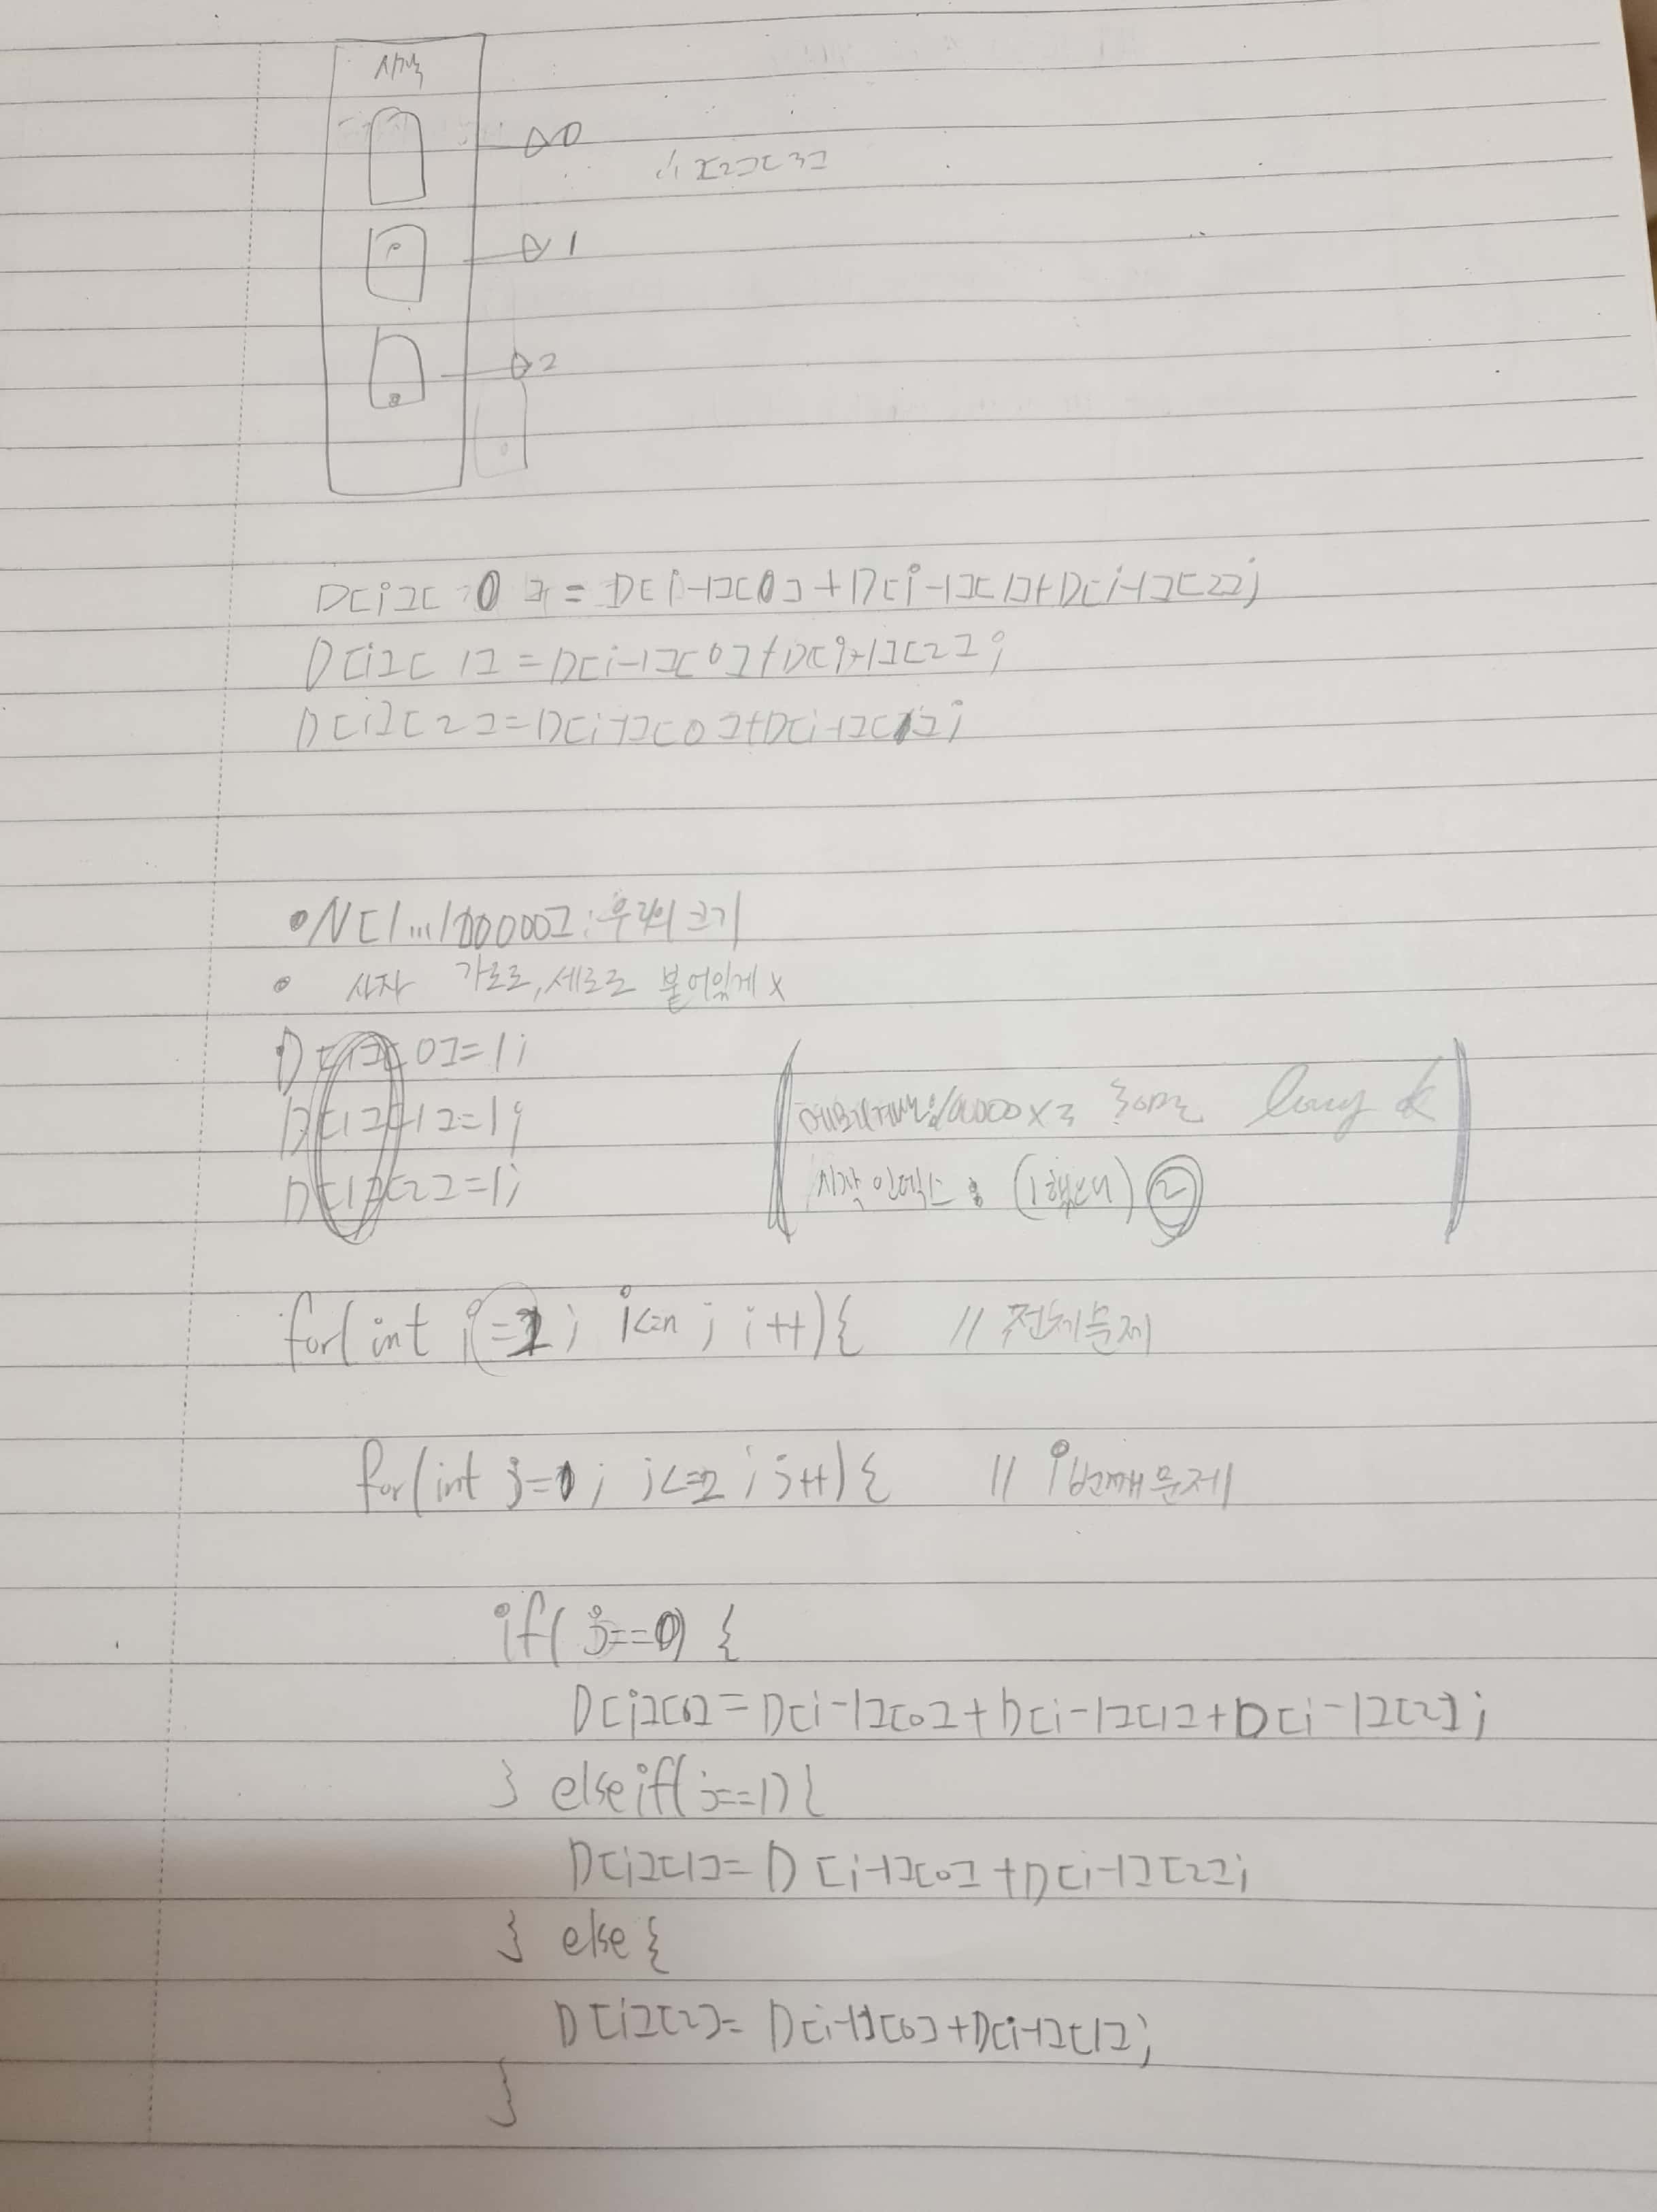 0
1
2
D[i][0] = D[i-1][0] + D[i-1][1] + D[i-1][2];
D[i][1] = D[i-1][0] + D[i-1][2];
D[i][2] = D[i-1][0] + D[i-1][1];
• N[1...100000] : 우리의 크기
• 사자 가로로, 세로로 붙어있게 x
D[1][0] = 1;
D[1][1] = 1;
D[1][2] = 1;
100000 x 3 long ok
시작 인덱스 : (1했는데) 2
for(int i=2; i<=n; i++){ // 전체문제
for(int j=0; j<=2; j++){ // i번째 문제
if(j==0) {
D[i][0] = D[i-1][0] + D[i-1][1] + D[i-1][2];
} else if(j==1){
D[i][1] = D[i-1][0] + D[i-1][2];
} else {
D[i][2] = D[i-1][0] + D[i-1][1];
}